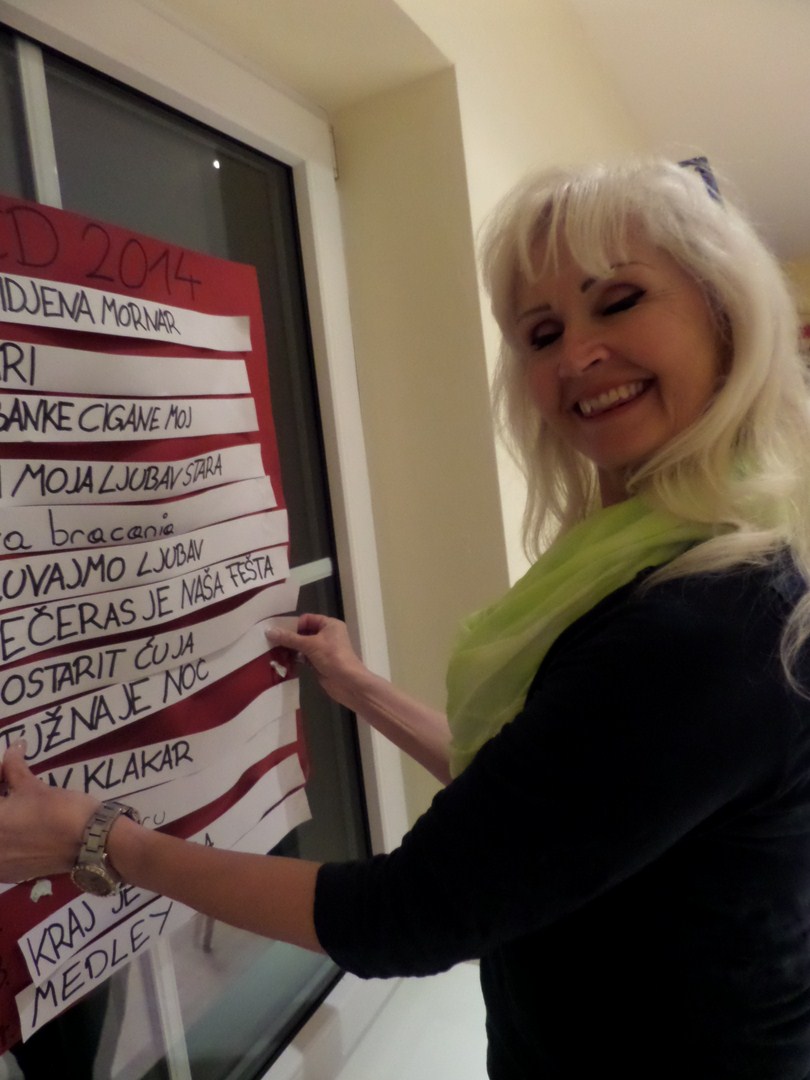 CD 2014
IDJENA MORNAR
ARI
BANKE CIGANE MOJ
I MOJA LJUBAV STARA
va bracania
UVAJMO LJUBAV
EČERAS JE NAŠA FEŠTA
OSTARIT ĆU JA
TUŽNA JE NOĆ
KLAKAR
KRAJ JE
MEDLEY